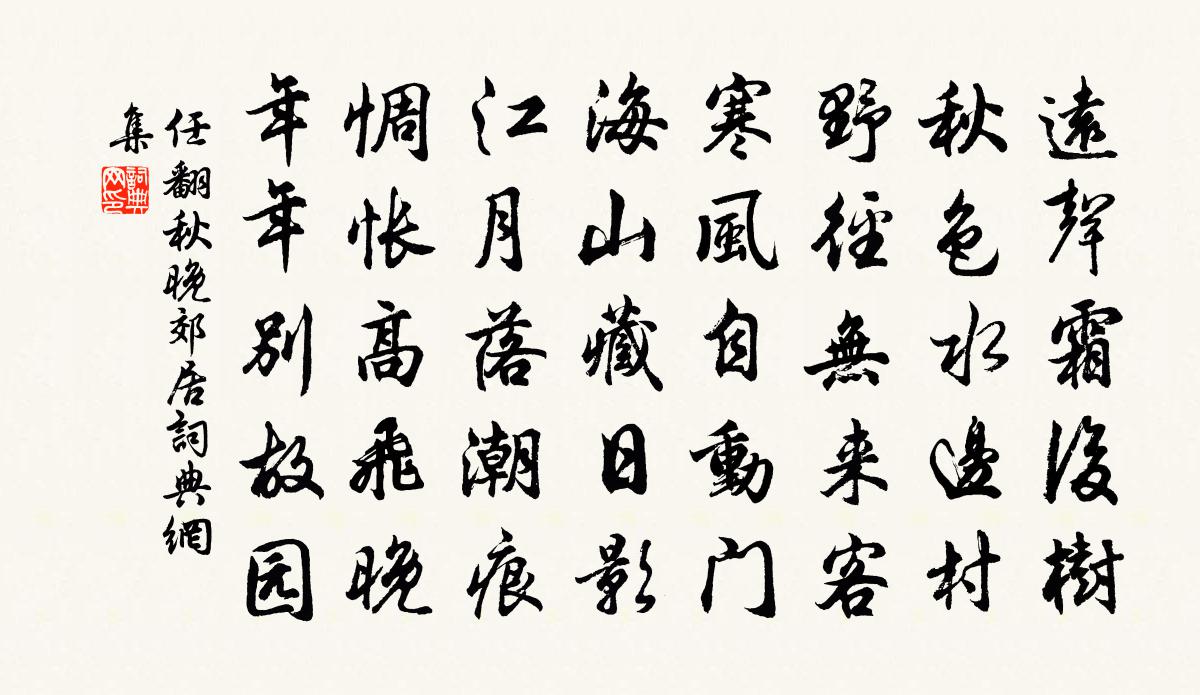 遠聲霜後樹
秋色水邊村
野徑無来客
寒風自動门
海山藏日影
江月落潮痕
惆怅高飛晚
年年别故园
任翻秋晚郊居詞典網
集
詞典
网印